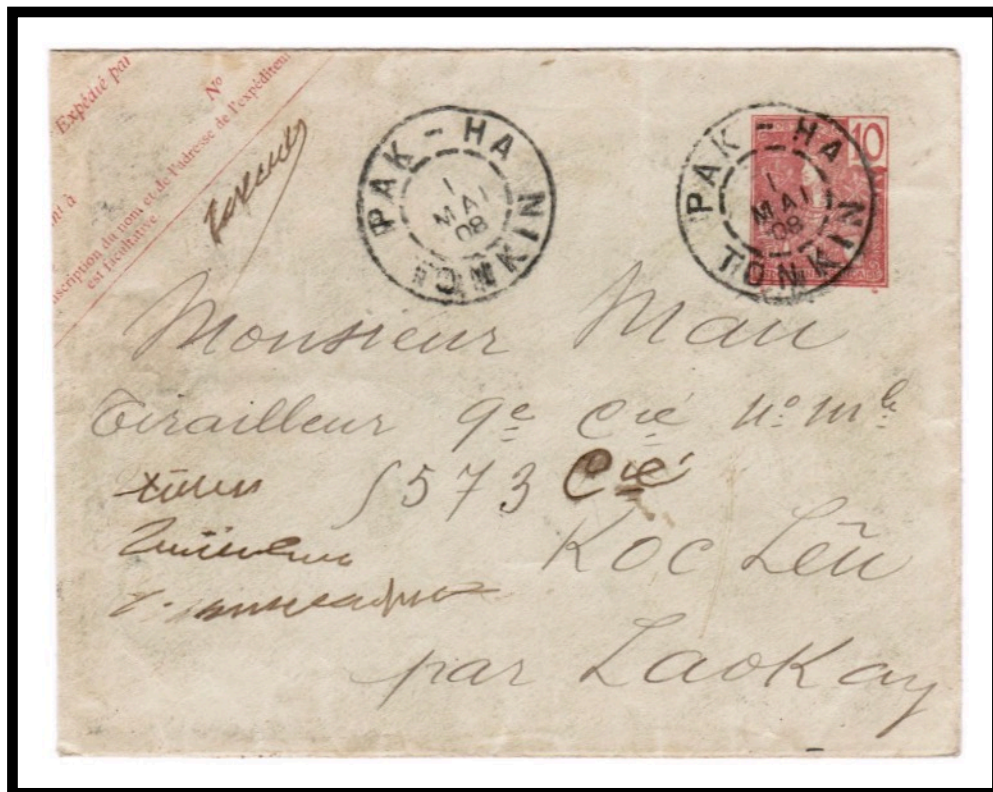 Expédié par
Nº
nscription du nom et de l'adresse de l'expéditeur
est facultative
PAK-HA
1
MAI
08
TONKIN
PAK-HA
1
MAI
08
TONKIN
10
Monsieur Mau
Tirailleur 9e Cie nº mle
5573 Cie
Koc Lêu
par Laokay